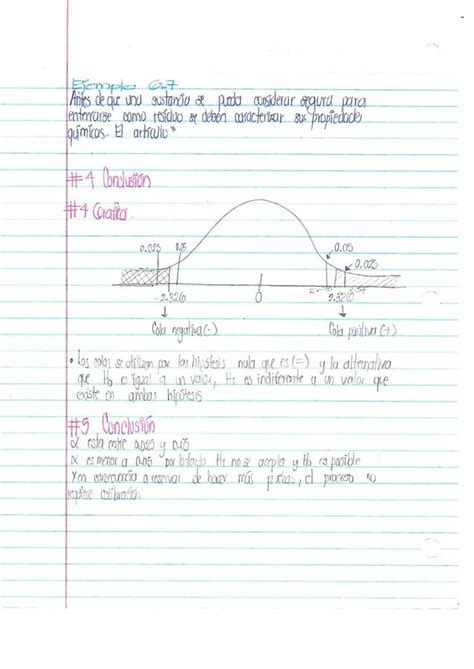 Ejemplo 6.7
Antes de que una sustancia se pueda considerar segura para
enterrarse como residuo se deben caracterizar sus propiedades
químicas. El artículo "
#4 Conclusión
#4 Grafica.
0.025 0.05 0.05
0.025
- 2.326 0 2.326
Cola negativa (-) Cola positiva (+)
• Las colas se utilizan por las hipótesis nula que es (=) y la alternativa
que Ho es igual a un valor, H1 es indiferente a un valor que
existe en ambas hipótesis
#5 Conclusión
α esta entre 0.025 y 0.05
α es menor a 0.05 por lo tanto H1 no se acepta y Ho es posible
Y en consecuencia a reservar de hacer más pruebas, el proceso no
requiere calibración.